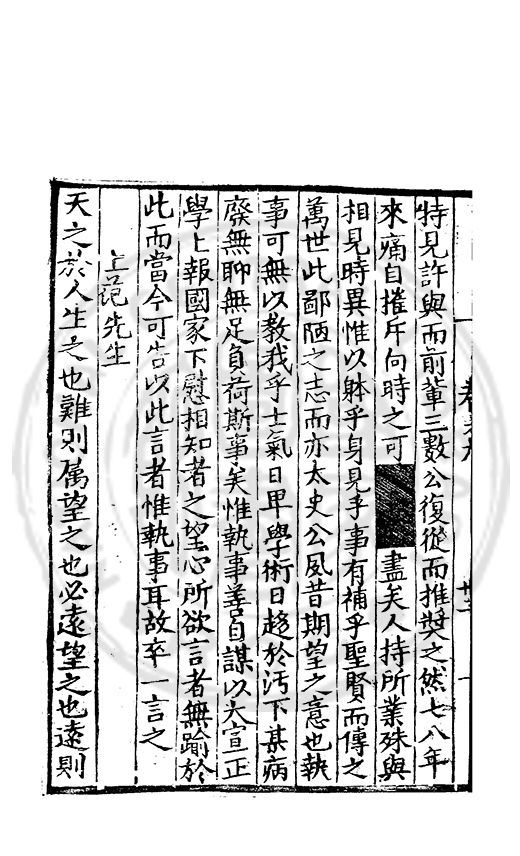 特見許與而前軰三數公復從而推奨之然七八年
來痛自摧斥向時之可盡矣人持所業殊與
相見時異惟以躰乎身見乎事有補乎聖賢而傳之
萬世此鄙陋之志而亦太史公夙昔期望之意也執
事可無以教我乎士氣日卑學術日趍於汚下某病
廢無聊無足負荷斯事矣惟執事善自謀以大宣正
學上報國家下慰相知者之望心所欲言者無踰於
此而當今可告以此言者惟執事耳故卒一言之
先生
天之於人生之也難則属望之也必遠望之也遠則